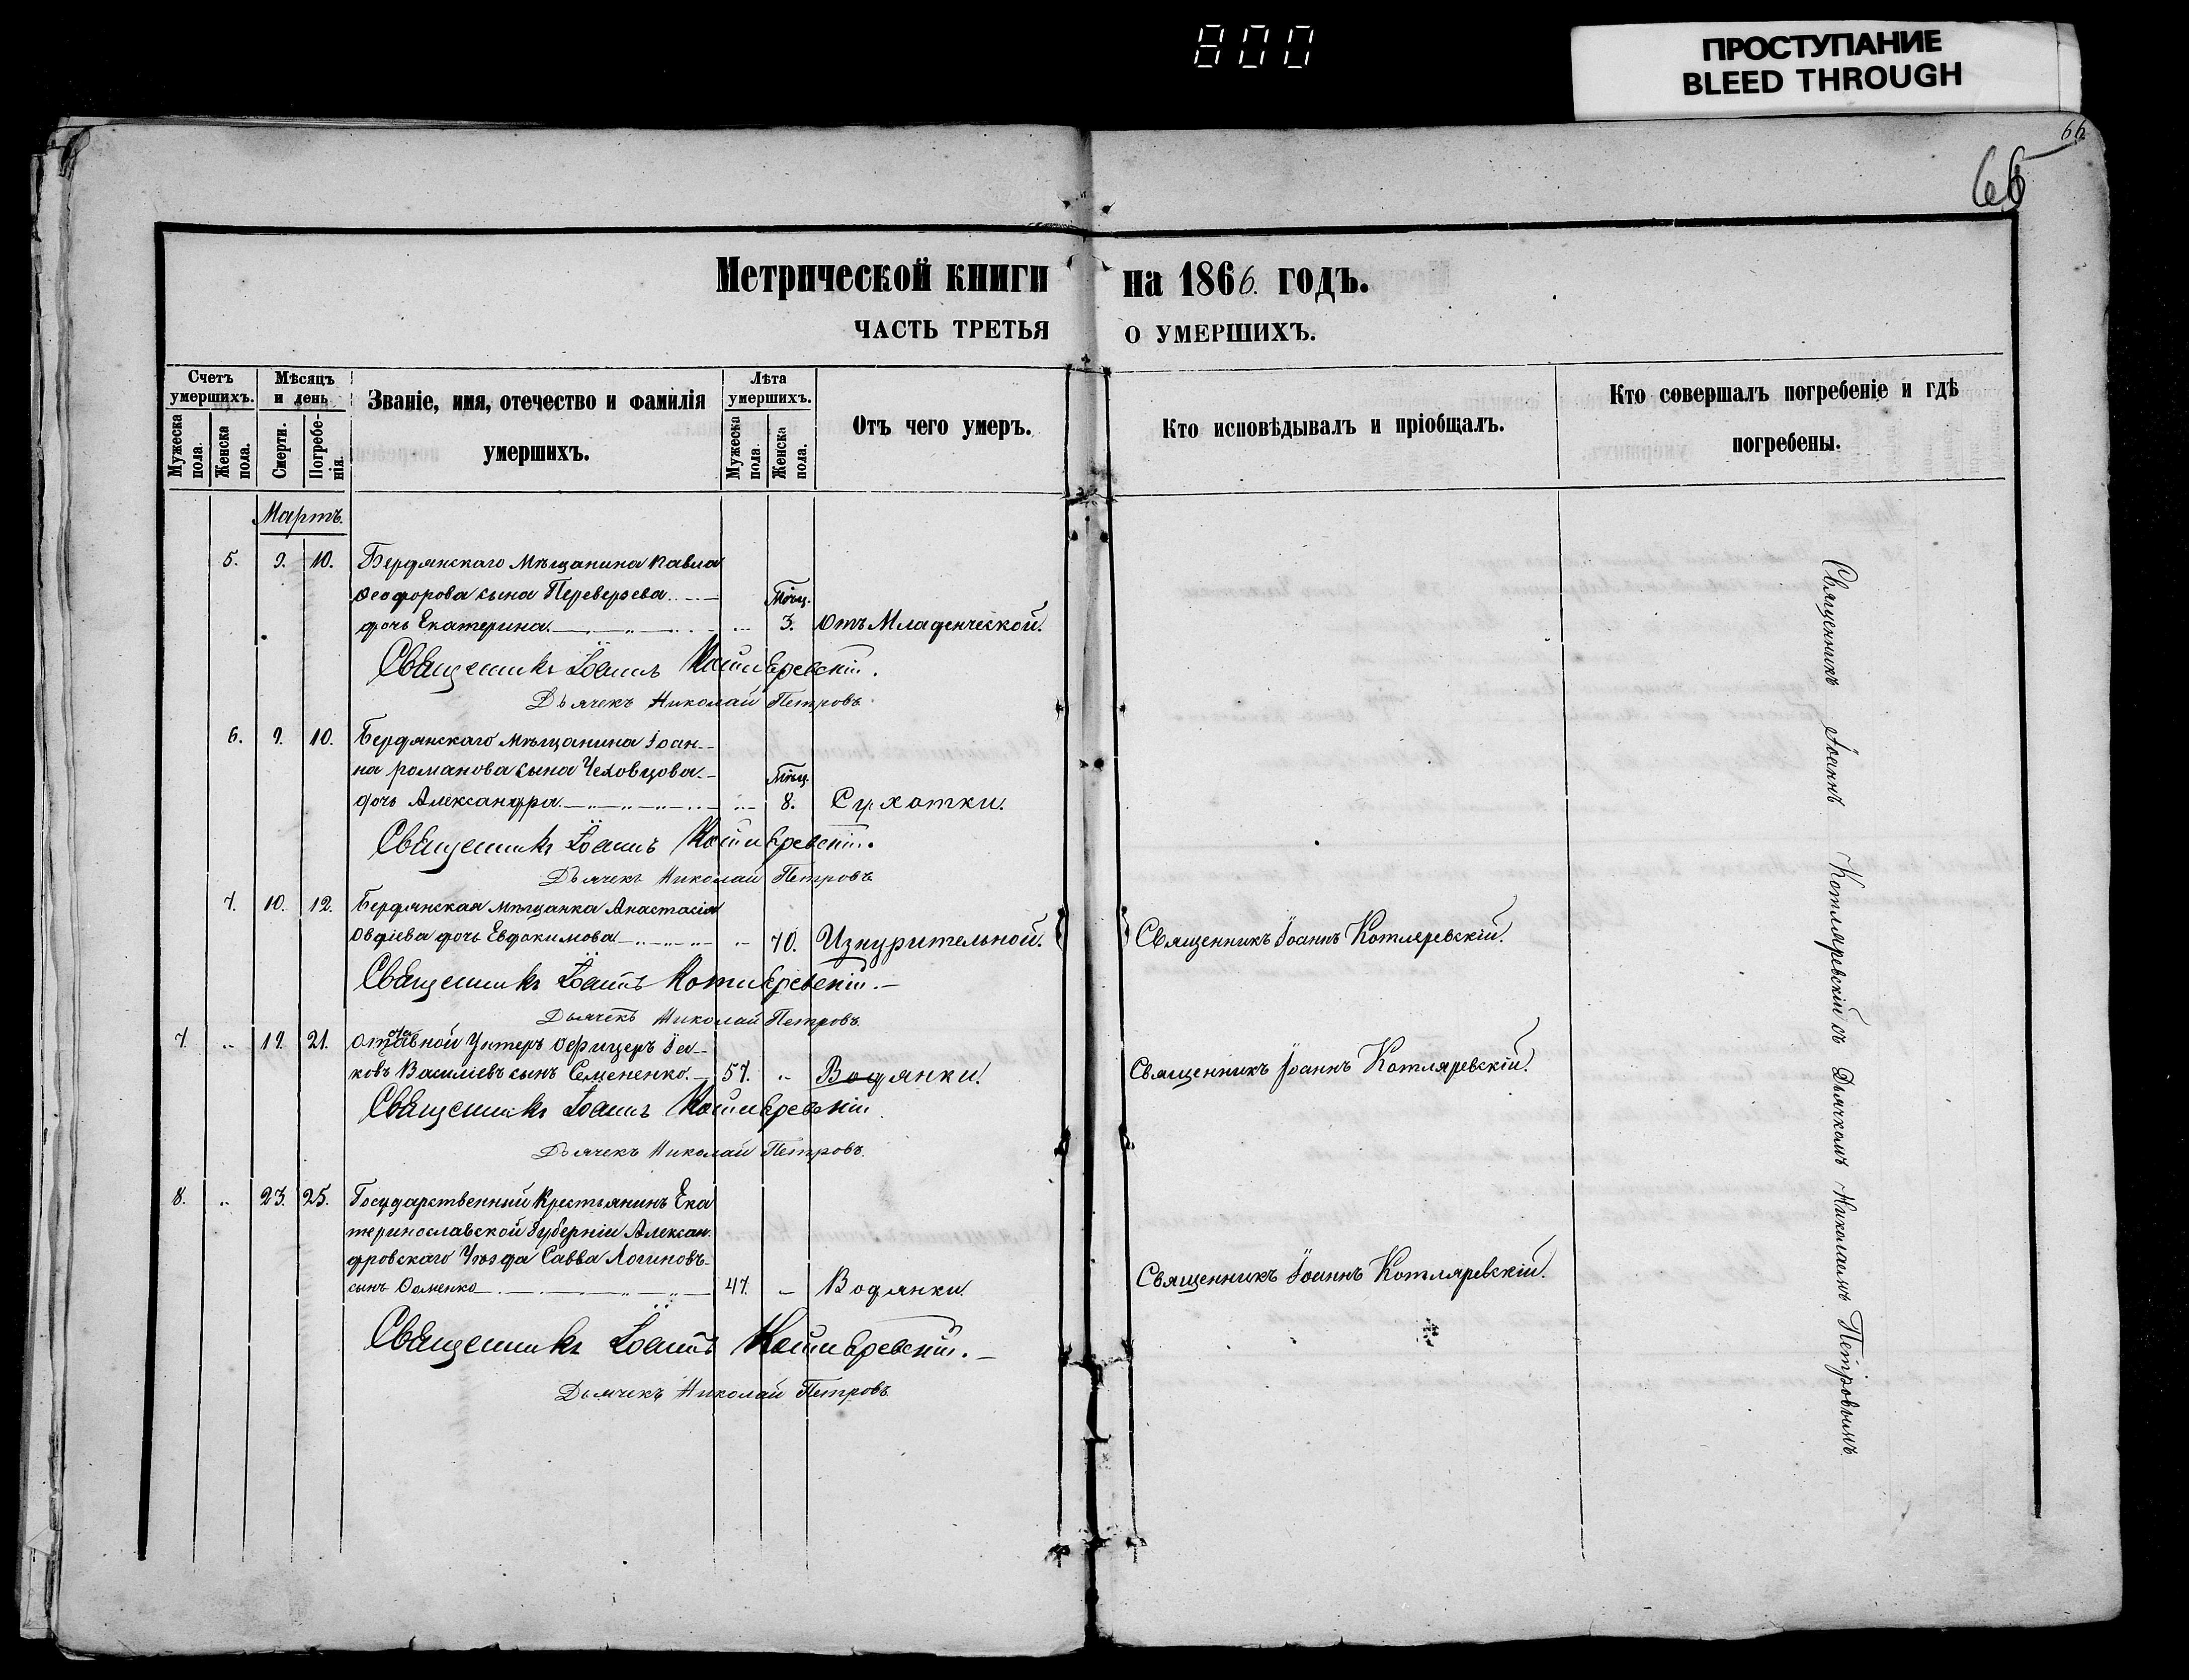 800
ПРОСТУПАНИЕ
BLEED THROUGH
66
66
Метрической книги на 1866. годъ.
ЧАСТЬ ТРЕТЬЯ О УМЕРШИХЪ.
Счетъ умершихъ.
Мужеска пола.
Женска пола.
Мѣсяцъ и день
Смерти.
Погребенія.
Званіе, имя, отечество и фамилія умершихъ.
Лѣта умершихъ.
Мужеска пола
Женска пола.
Отъ чего умеръ.
Кто исповѣдывалъ и пріобщалъ.
Кто совершалъ погребеніе и гдѣ погребены.
Мартъ.
5. 9. 10. Бердянскаго Мѣщанина Павла
Ѳеодорова сына Переверзева
дочь Екатерина. 3. Отъ Младенческой.
Священникъ Іоаннъ Котляревскій.
Дьячекъ Николай Петровъ
6. 9. 10. Бердянскаго Мѣщанина Іоан-
на Романова сына Чеховцова
дочь Александра. 8. Сухотки.
Священникъ Іоаннъ Котляревскій.
Дьячекъ Николай Петровъ
7. 10. 12. Бердянская Мѣщанка Анастасія
Овдіева дочь Евдокимова 70. Изнурительной. Священникъ Іоаннъ Котляревскій.
Священникъ Іоаннъ Котляревскій.
Дьячекъ Николай Петровъ
7. 19. 21. Унтеръ Офицеръ Іа-
ковъ Василіевъ сынъ Семененко. 57. Водянки. Священникъ Іоаннъ Котляревскій.
Священникъ Іоаннъ Котляревскій
Дьячекъ Николай Петровъ
8. 23. 25. Государственный Крестьянинъ Ека
теринославской Губерніи Алексан
дровскаго Уѣзда Савва Логиновъ
сынъ 47. Водянки. Священникъ Іоаннъ Котляревскій.
Священникъ Іоаннъ Котляревскій.
Дьячекъ Николай Петровъ
Священникъ Іоаннъ Котляревскій съ Дьячкомъ Николаемъ Петровымъ